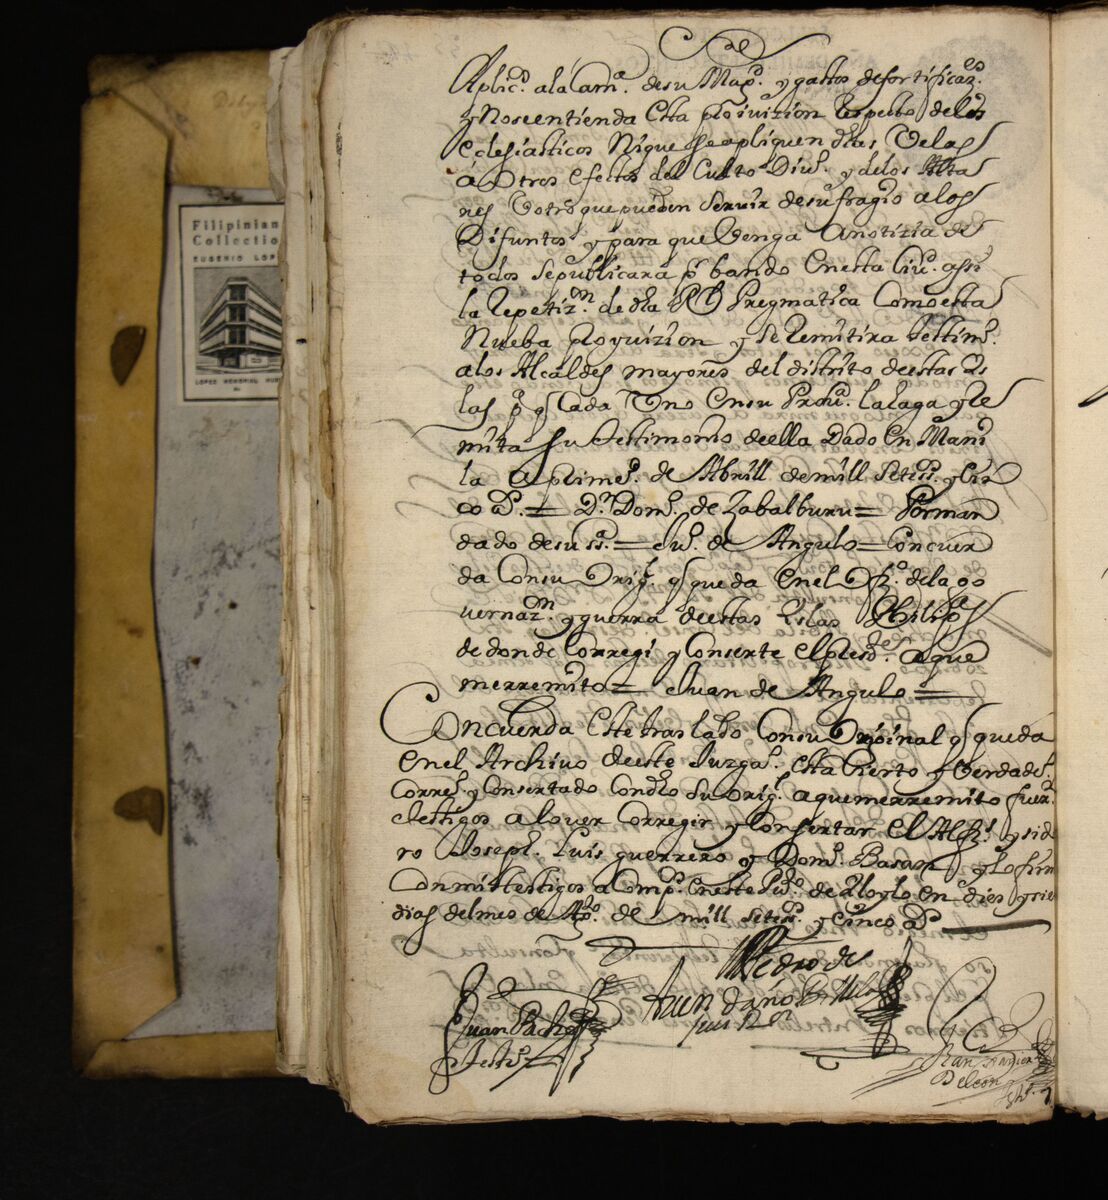 Filipinian
Collectio
EUGENIO LOP
LOPEZ MEMORIAL MUS
Aplicos. ala Cama. de su Magd. y gastos de fortificazes.
y No se entienda Esta proivizion Respecto delos
Eclesiasticos Ni que se apliquen dhas Velas
á Otros efectos del Culto Divo. y delos Alta
res V otro que pueden Servir de sufragio alos
Difuntos y para que Venga a notizia de
todos se publicara pr. bando En esta Ciud. assi
la Repetizon. de dha Rl Pregmatica Como esta
Nueba proyvizion y se Remitira testimo.
alos Alcaldes mayores del distrito de estas Ys
las pa. q Cada Vno En su Prova. la haga y Re
mita su testimonio de ella Dado En Mani
la a primero. de Abrill de mill Setess. y Cin
co as. = Dn. Domo. de Zabalburu = Por man
dado de su sa. = Jun. de Angulo = Concuer
da Con su Origl. q queda En el Ofizo. de la Go
vernazon. y guerra de estas Yslas Philipas
de donde Corregi y Conserte el preste. a que
me rremito = Juan de Angulo =
Concuerda Este traslado Con su Orijinal q queda
En el Archivo de este Juzgdo. Esta Cierto y Verdado.
Correxdo. y Consertado Con dho Su Origl. a que me rremito fueron
testigos alo ver Corregir y Consertar El Alfz. Ysid
ro Joseph. Luis guerrero y Domo. Basan y lo firm
Con mis testigos acompdos. En este Puo. de Yloylo En dies y sie
dias del mes de Agto. de mill Setess. y Cinco as.
Pedro de
Juan Pacheco
testo.
Fran Xavier
De leon